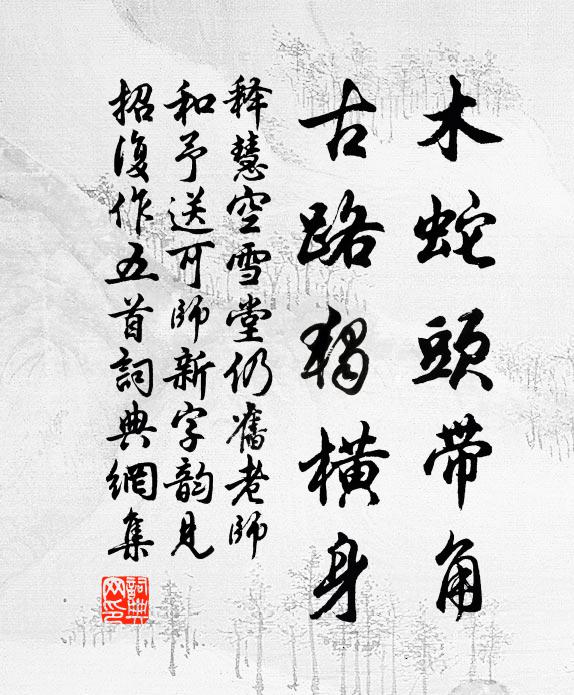 木蛇頭带角
古路獨横身
释慧空雪堂仍舊老師
和予送可師新字韵見
招復作五首詞典網集
詞典网印